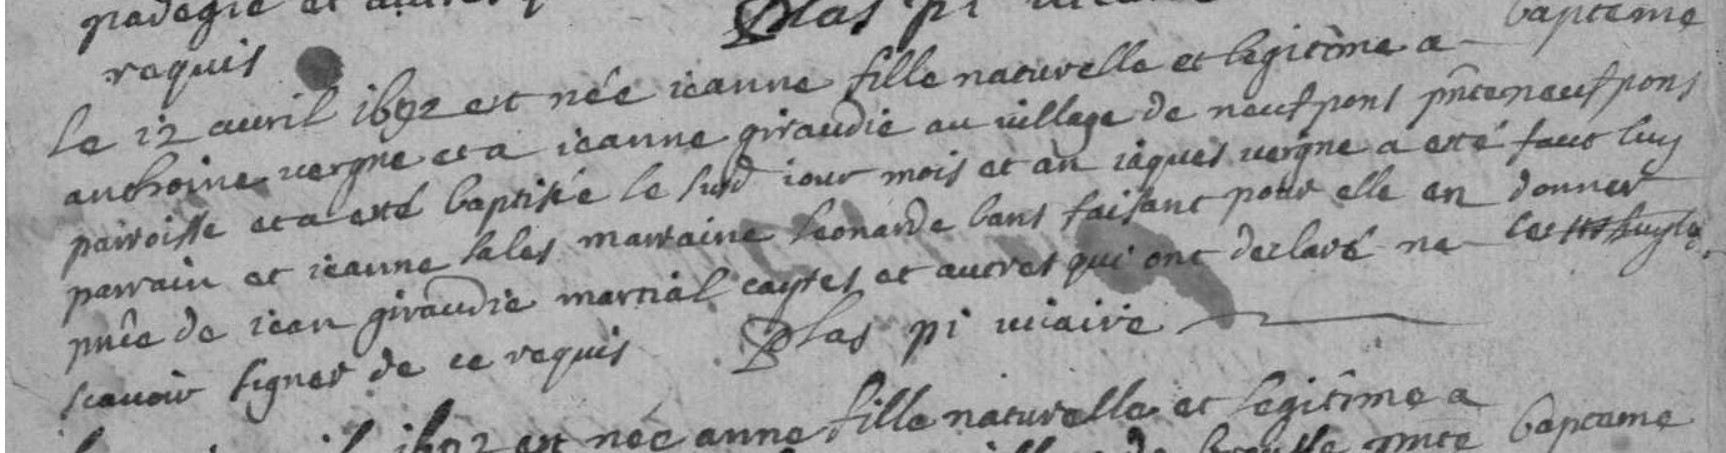 requis
le 12 auril 1692 est née ieanne fille naturelle et legitime a bapteme
anthoine vergne et a ieanne giraudie au village de neufpons pnte neufpons
parroisse et a esté baptisée le susd iour mois et an iaques vergne a esté faut luy
parrain et ieanne sales marraine leonarde bans faisant pour elle en donner
pnce de iean giraudie martial cayres et autres qui ont declaré ne
scauoir signer de ce requis Plas pi uicaire
1692 est née anne fille naturelle et legitime a
pnte bapteme